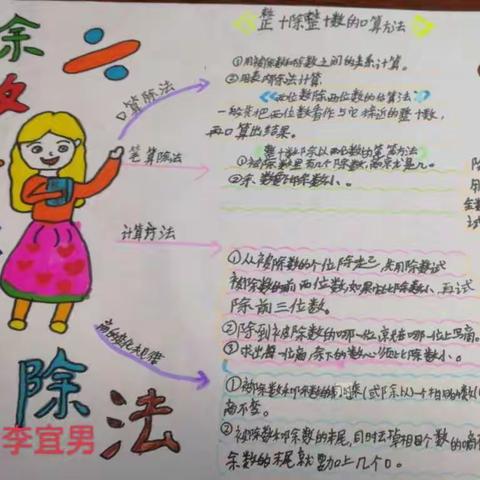 除
数
整十除整十数的口算方法
①用被除数和除数之间的关系计算。
②用表内除法计算
两位数除两位数的估算法
一般先把两位数看作与它接近的整十数,
再口算出结果。
口算除法
笔算除法
①被除数里有几个除数,商就是几。
②余数要比除数小。
计算方法
①从被除数的个位除起,先用除数试
被除数的前两位数,如果它比除数小,再试
除前三位数。
②除到被除数的哪一位,就在哪一位上写商。
③求出每一位商,余下的数必须比除数小。
商的变化规律
①被除数和除数同
商不变。
②被除数和除数的末尾,同时去掉相同个数的
余数的末尾就要加上几个0。
除法
李宜男